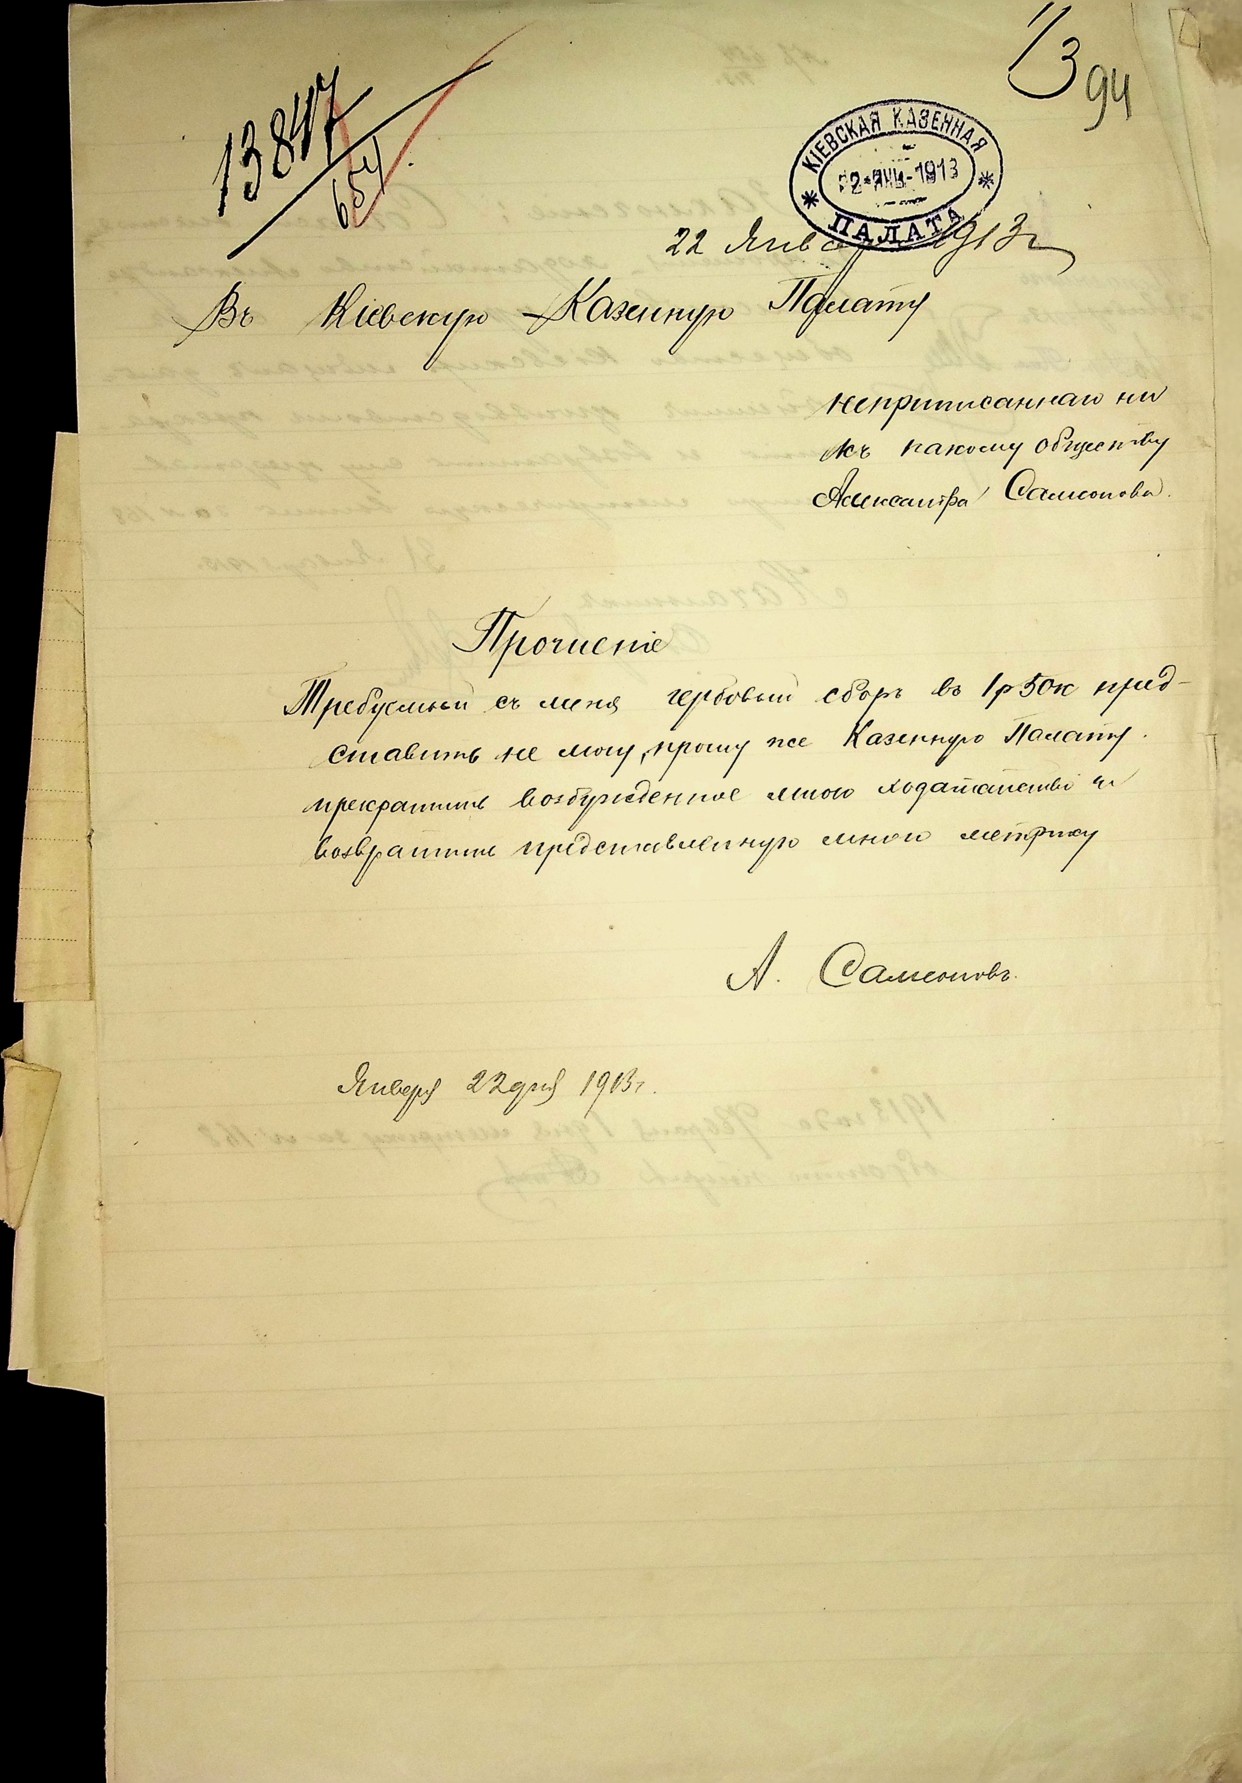 13847
654
1/3
94
КІЕВСКАЯ КАЗЕННАЯ
22 ЯНВ. 1913
ПАЛАТА
22 Января 1913 г
Въ Кіевскую Казенную Палату
неприписаннаго ни
къ какому обществу
Александра Самсонова.
Прошеніе
Требуемый съ меня гербовый сборъ въ 1 р 50 к пред-
ставить не могу, прошу же Казенную Палату
прекратить возбужденное мною ходатайство и
возвратить представленную мною метрику
А. Самсоновъ.
Января 22 дня 1913 г.